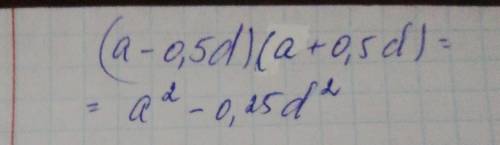 (a - 0,5d)(a + 0,5d) =
= a² - 0,25d²